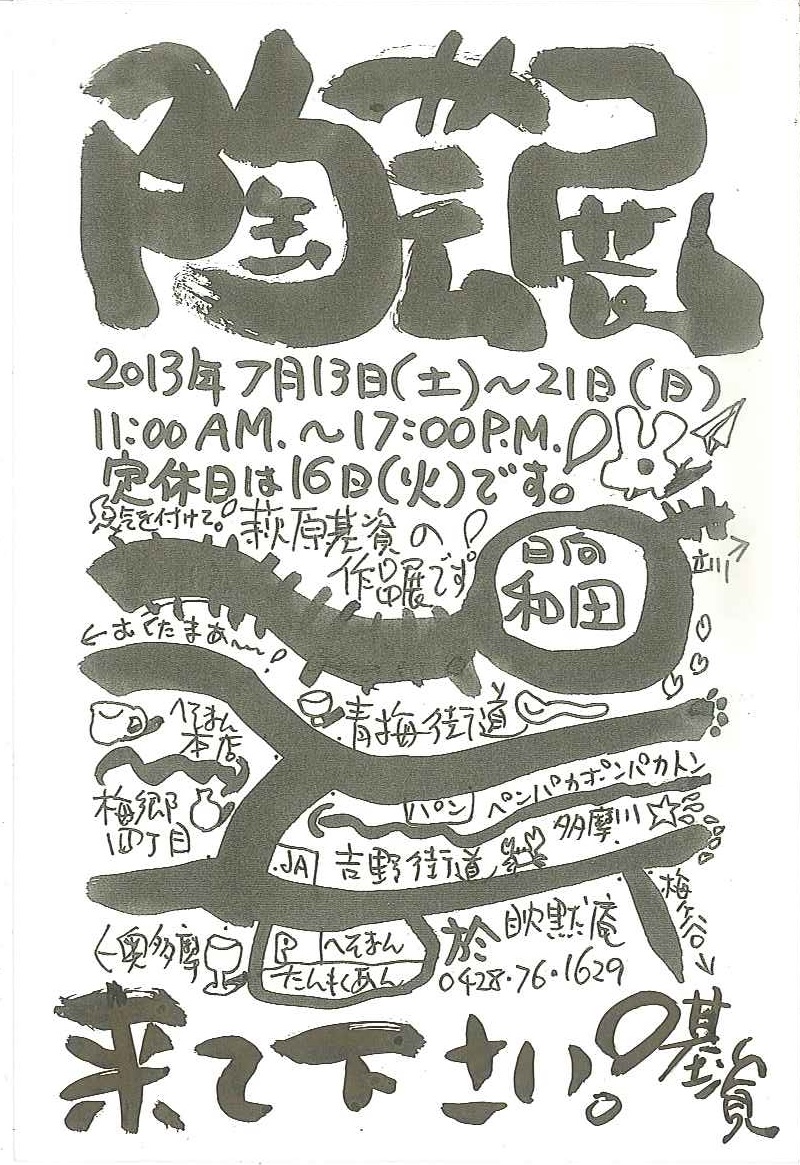 陶芸展
2013年7月13日(土)～21日(日)
11:00 AM. ～17:00 P.M.!
定休日は16日(火)です。
気を付けて。
萩原基資の!
作品展です
日向
和田
立川
←むてたまぁ〜!
へそまん
本店
青梅街道
梅郷
四丁目
パン
ペンパカポンパカトン
多摩川
JA
吉野街道
梅ヶ谷
←奥多摩
P
へそまん
たんもくあん
於
眈黙庵
0428・76・1629
来て下さい!
基資